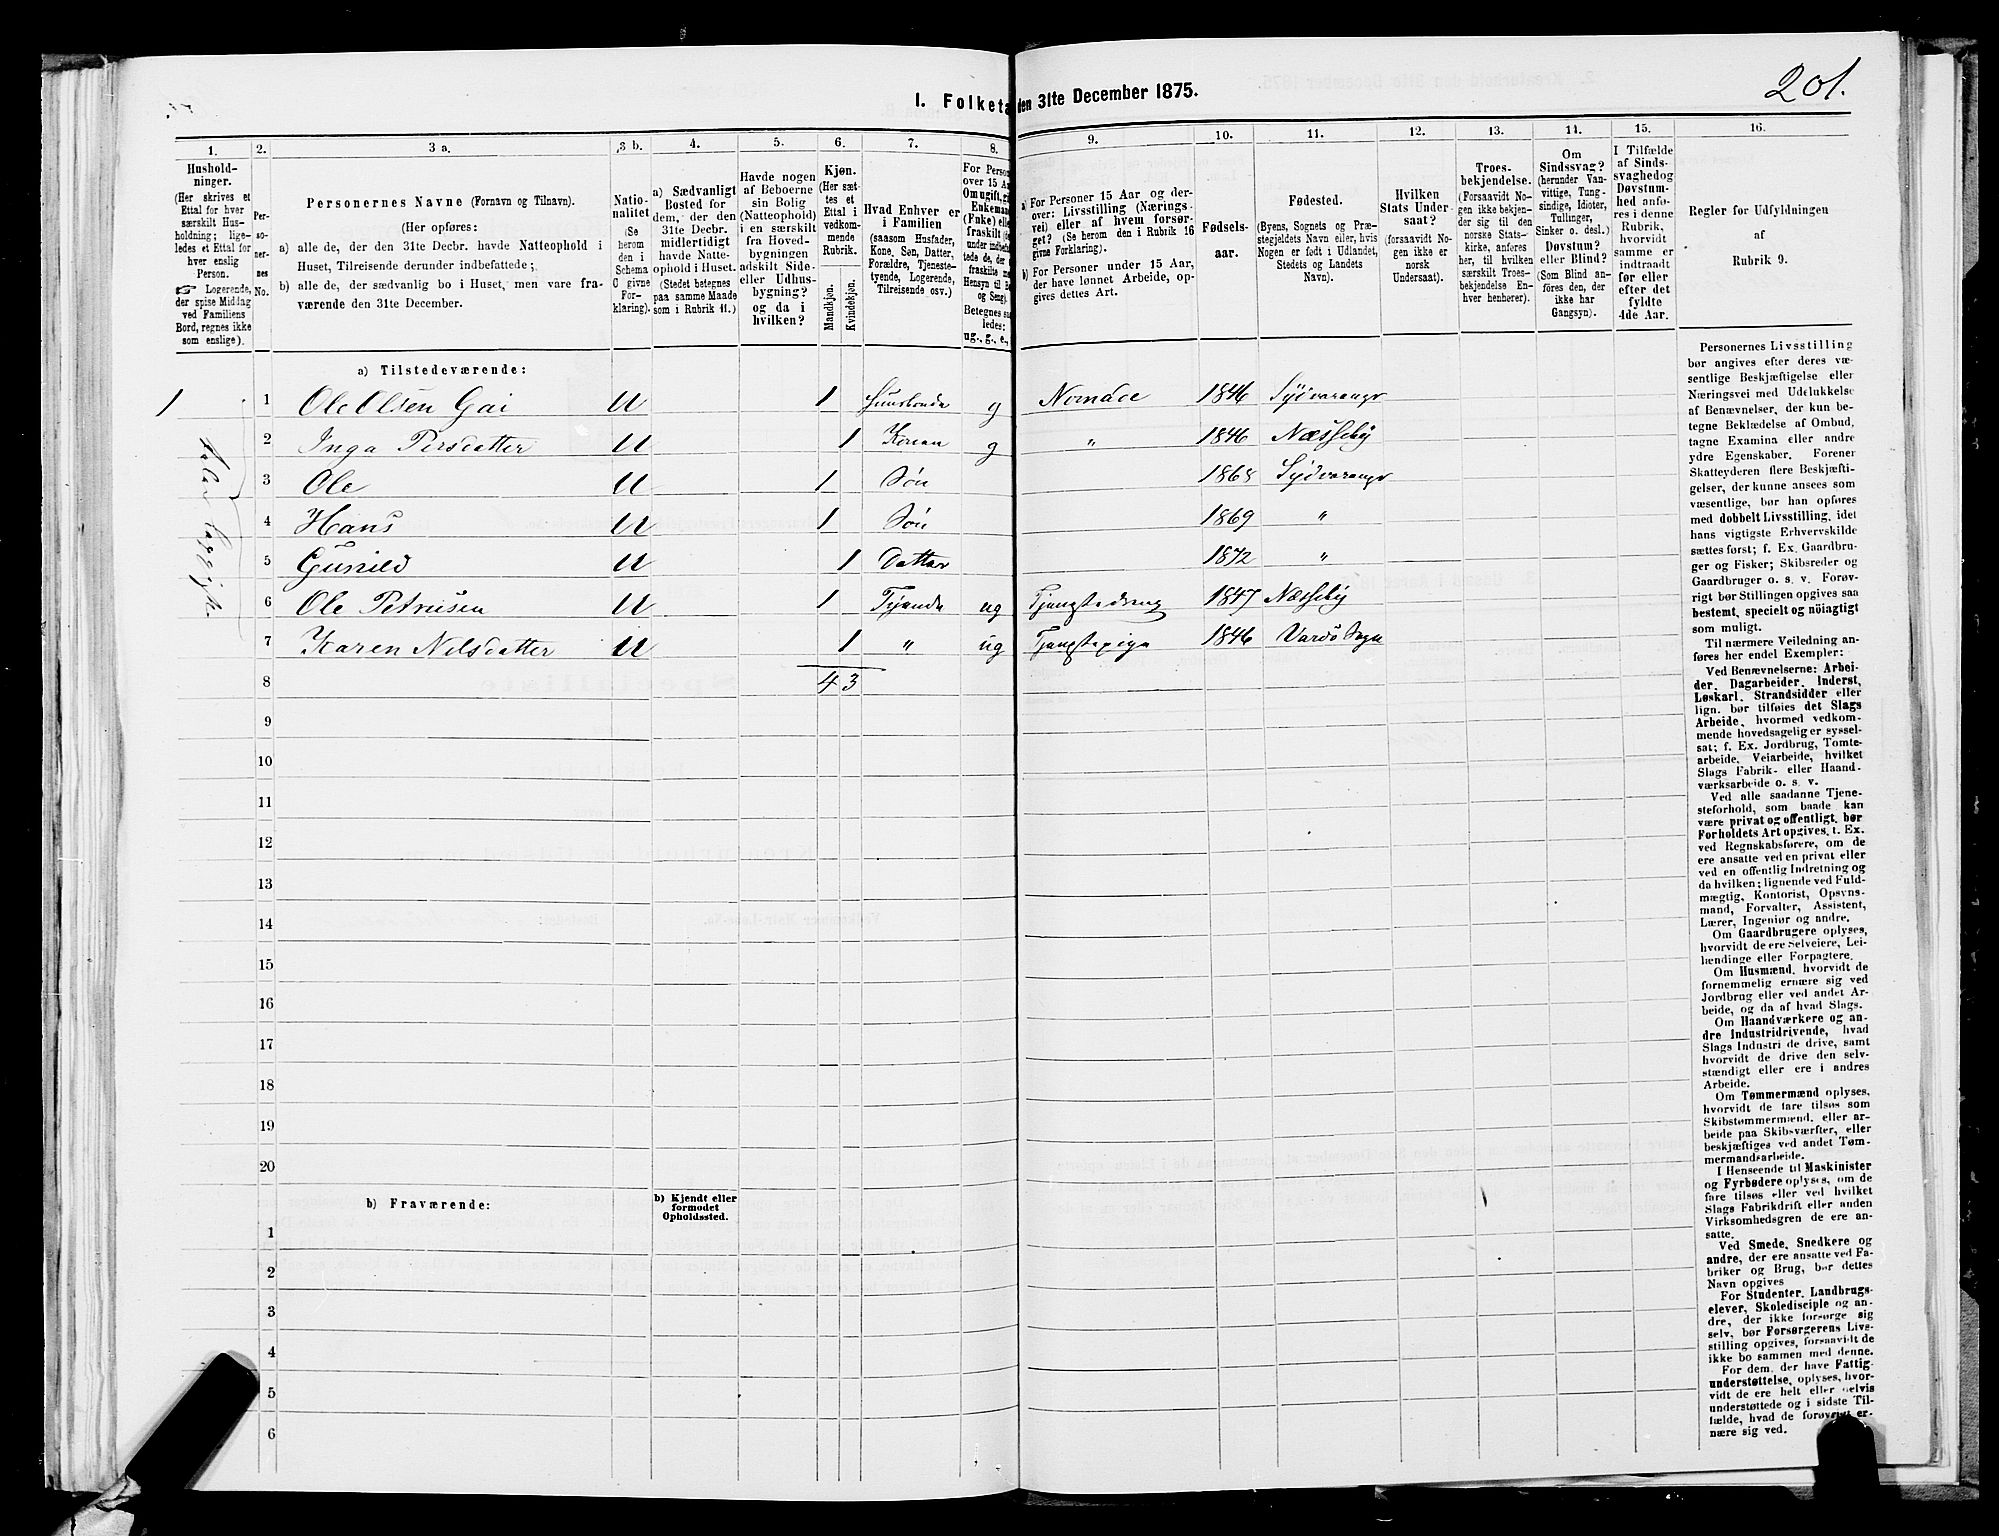 201.
I. Folketa den 31te December 1875.
1. 2. 3 a. 3 b. 4. 5. 6. 7. 8. 9. 10. 11. 12. 13. 14. 15. 16.
Hushold-
ninger.
(Her skrives et
Ettal for hver
særskilt Hus-
holdning; lige-
ledes et Ettal for
hver enslig
Person.
☞ Logerende,
der spise Middag
ved Familiens
Bord, regnes ikke
som enslige).
Per-
so-
ner-
nes
No.
Personernes Navne (Fornavn og Tilnavn).
(Her opføres:
a) alle de, der den 31te Decbr. havde Natteophold i
Huset, Tilreisende derunder indbefattede;
b) alle de, der sædvanlig bo i Huset, men vare fra-
værende den 31te December.
Natio-
nalitet
(Se
herom
den i
Schema
C givne
For-
klaring).
a) Sædvanligt
Bosted for
dem, der den
31te Decbr.
midlertidigt
havde Natte-
ophold i Huset.
(Stedet betegnes
paa samme Maade
som i Rubrik 11.)
Havde nogen
af Beboerne
sin Bolig
(Natteophold)
i en særskilt
fra Hoved-
bygningen
adskilt Side-
eller Udhus-
bygning?
og da i
hvilken?
Kjøn.
(Her sæt-
tes et
Ettal i
vedkom-
mende
Rubrik.
Mandkjøn.
Kvindekjøn.
Hvad Enhver er
i Familien
(saasom Husfader,
Kone, Søn, Datter,
Forældre, Tjeneste-
tyende, Logerende,
Tilreisende osv.)
For Person
over 15 Aa
Om ugift, gi
Enkeman
(Fnke) elle
fraskilt (o
under indbe
tede de, der
fraskilte m
Hensyn til B
og Seng).
Betegnes sa
ledes:
ug., g., e.,
a) For Personer 15 Aar og der-
over: Livsstilling (Nærings-
vei) eller af hvem forsør-
get? (Se herom den i Rubrik 16
givne Forklaring).
b) For Personer under 15 Aar,
der have lønnet Arbeide, op-
gives dettes Art.
Fødsels-
aar.
Fødested.
(Byens, Sognets og Præ-
stegjeldets Navn eller, hvis
Nogen er født i Udlandet,
Stedets og Landets
Navn).
Hvilken
Stats Under-
saat?
(forsaavidt No-
gen ikke er
norsk
Undersaat).
Troes-
bekjendelse.
(Forsaavidt No-
gen ikke bekjen-
der sig til den
norske Stats-
kirke, anføres
her, til hvilken
særskilt Troes-
bekjendelse En-
hver henhører).
Om
Sindssvag?
(herunder Van-
vittige, Tung-
sindige, Idioter,
Tullinger,
Sinker o. desl.)
Døvstum?
eller Blind?
(Som Blind an-
føres den, der
ikke har
Gangsyn).
I Tilfælde
af Sinds-
svaghed og
Døvstum-
hed anfø-
res i denne
Rubrik,
hvorvidt
samme er
indtraadt
før eller
efter det
fyldte
4de Aar.
Regler for Udfyldningen
af
Rubrik 9.
a) Tilstedeværende:
1 1 Ole Olsen Gai U 1 Huusbonde g Nomade 1846 Sydvaranger
2 Inga Persdatter U 1 Konen g " 1846 Næsseby
3 Ole U 1 Søn 1868 Sydvaranger
4 Hans U 1 Søn 1869 "
5 Gunild U 1 Datter 1872 "
6 Ole Petrusen U 1 Tyende ug Tjenestedreng 1847 Næsseby
7 Karen Nilsdatter U 1 " ug Tjenestepige 1846 Vardø Sogn
8 4 3
9
10
11
12
13
14
15
16
17
18
19
20
b) Fraværende:
b) Kjendt eller
formodet
Opholdssted.
1
2
3
4
5
6
Personernes Livsstilling
bør angives efter deres væ-
sentlige Beskjæftigelse eller
Næringsvei med Udelukkelse
af Benævnelser, der kun be-
tegne Beklædelse af Ombud,
tagne Examina eller andre
ydre Egenskaber. Forener
Skatteyderen flere Beskjæfti-
gelser, der kunne ansees som
væsentlige, bør han opføres
med dobbelt Livsstilling, idet
hans vigtigste Erhvervskilde
sættes først; f. Ex. Gaardbru-
ger og Fisker; Skibsreder og
Gaardbruger o. s. v. Forøv-
rigt bør Stillingen opgives saa
bestemt, specielt og nöiagtigt
som muligt.
Til nærmere Veiledning an-
føres her endel Exempler:
Ved Benævnelserne: Arbei-
der, Dagarbeider, Inderst,
Løskarl, Strandsidder eller
lign. bør tilføies det Slags
Arbeide, hvormed vedkom-
mende hovedsagelig er syssel-
sat; f. Ex. Jordbrug, Tomte-
arbeide, Veiarbeide, hvilket
Slags Fabrik- eller Haand-
værksarbeide o. s. v.
Ved alle saadanne Tjene-
steforhold, som baade kan
være privat og offentligt, bør
Forholdets Art opgives, t. Ex.
ved Regnskabsførere, om de
ere ansatte ved en privat eller
ved en offentlig Indretning og
da hvilken; lignende ved Fuld-
mægtig, Kontorist, Opsyns-
mand, Forvalter, Assistent,
Lærer, Ingeniør og andre.
Om Gaardbrugere oplyses,
hvorvidt de ere Selveiere, Lei-
lændinge eller Forpagtere.
Om Husmænd, hvorvidt de
fornemmelig ernære sig ved
Jordbrug eller ved andet Ar-
beide, og da af hvad Slags.
Om Haandværkere og an-
dre Industridrivende, hvad
Slags Industri de drive, samt
hvorvidt de drive den selv-
stændigt eller ere i andres
Arbeide.
Om Tømmermænd oplyses,
hvorvidt de fare tilsøs som
Skibstømmermænd, eller ar-
beide paa Skibsværfter, eller
beskjæftiges ved andet Tøm-
mermandsarbeide.
I Henseende til Maskinister
og Fyrbødere oplyses, om de
fare tilsøs eller ved hvilket
Slags Fabrikdrift eller anden
Virksomhedsgren de ere an-
satte.
Ved Smede, Snedkere og
andre, der ere ansatte ved Fa-
briker og Brug, bør dettes
Navn opgives
For Studenter, Landbrugs-
elever, Skoledisciple og an-
dre, der ikke forsørge sig
selv, bør Forsørgerens Livs-
stilling opgives, forsaavidt de
ikke bo sammen med denne.
For dem, der have Fattig-
understøttelse, oplyses, hvor-
vidt de ere helt eller delvis
understøttede og i sidste Til-
fælde, hvad de forøvrigt er-
nære sig ved.